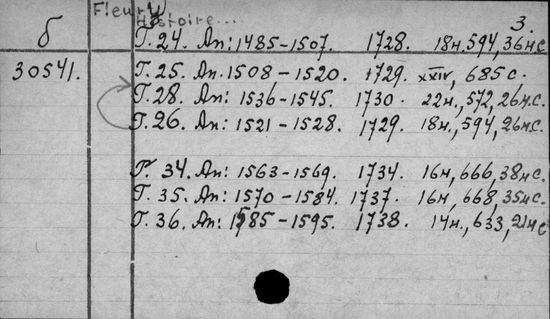 Fleury
Histoire...
3.
б
T. 24. An: 1485-1507. 1728. 18н. 594, 36нс
30541.
T. 25. An. 1508-1520. 1729. xxiv, 685 с.
T. 28. An: 1536-1545. 1730. 22н., 572, 26н.с.
T. 26. An: 1521-1528. 1729. 18н., 594, 26н.с.
T. 34. An: 1563-1569. 1734. 16н, 666, 38нс.
T. 35. An: 1570-1584. 1737. 16н, 668, 35нс.
T. 36. An: 1585-1595. 1738. 14н., 633, 21нс